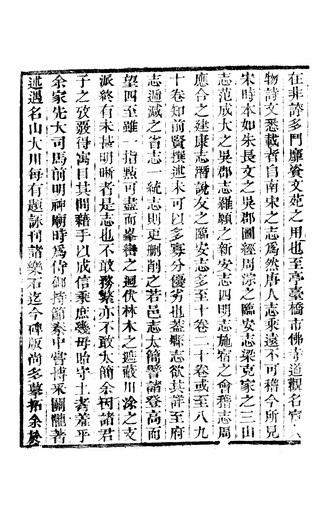 在非誇多鬥靡資文苑之用也至亭臺橋市佛寺道觀名宦人
物詩文悉載者自南宋之志爲然唐人志乘遠不可稽今所見
宋時本如朱長文之吳郡圖經周淙之臨安志梁克家之三山
志范成大之吳郡志羅願之新安志四明志施宿之會稽志周
應合之建康志潛說友之臨安志多至十卷二十卷或至八九
十卷知前賢撰述未可以多寡分優劣也蓋縣志欲其詳至府
志通減之省志一統志則更刪削之若邑志太簡譬諸登高而
望四至雖一指點可盡而巒岫之迴伏林木之遮蔽川涂之支
派終有未甚明晰者是志也不敢務繁亦不敢太簡余因諸君
子之攷覈得寓目其間藉手以成信乘庶幾毋貽守土者羞乎
余家先大司馬前明神廟時爲侍御持節秦中嘗搏采關隴著
述遇名山大川每有題詠刊諸樂石迄今碑版尚多摹拓余於